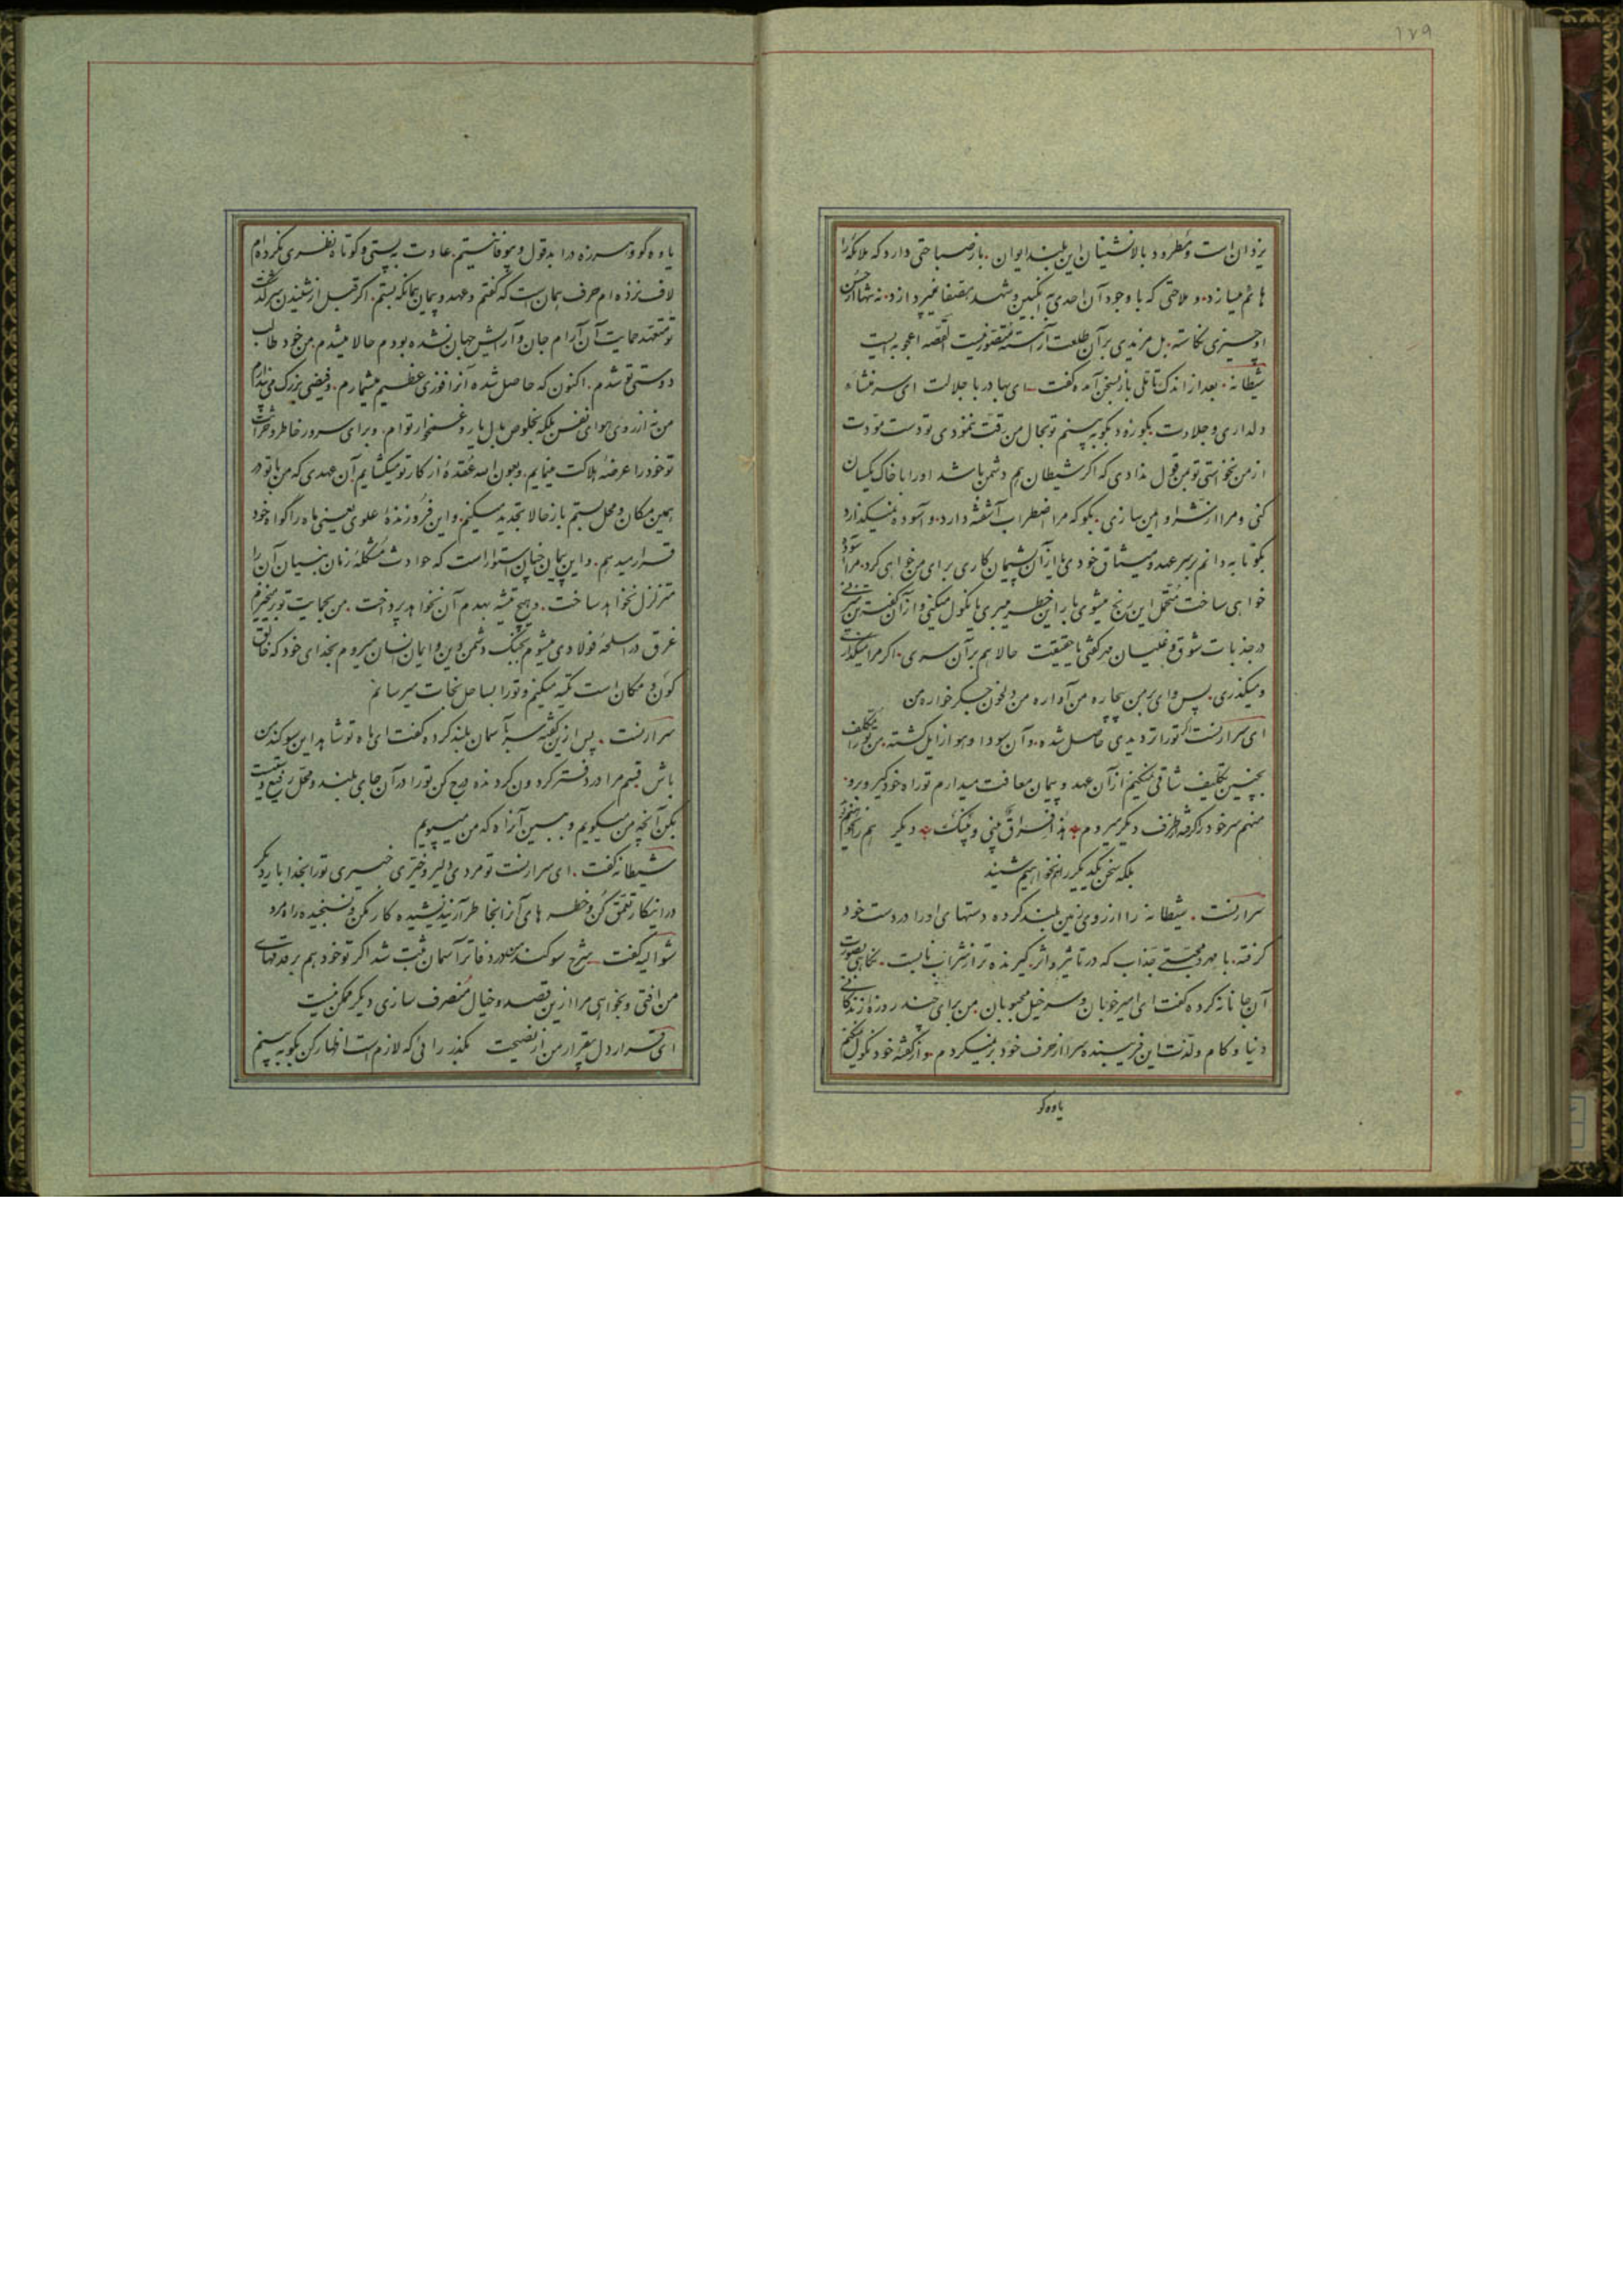 ۱۲۹
یزدان است و مطرود بالانشینان این بلند ایوان. باز صباحتی دارد که ملائکه را
هائم میسازد. و ملاحتی که با وجود آن احدی به انگبین و شهد مصفا نمیپردازد. نه تنها از حسن
او چیزی نکاسته. بل مزیدی بر آن طلعت آراسته متصور نیست القصه اعجوبه ایست
شیطانه. بعد از اندک تأملی باز بسخن آمده گفت ای بهادر با جلالت ای سرمنشاء
دلداری و جلادت بگو زود بگو به بینم تو بحال من رقت ننمودی تو دست مودت
از من نخواستی تو بمن قول ندادی که اگر شیطان هم دشمن باشد او را با خاک یکسان
کنی و مرا از شر او ایمن سازی. بگو که مرا اضطراب آشفته دارد. و آسوده نمیگذارد
بگو تا بدانم بر سر عهد و میثاق خودی یا از آن پشیمان کاری برای من خواهی کرد. مرا آسوده
خواهی ساخت متحمل این رنج میشوی بار این خطر میبری یا نکول میکنی و از آن گفته
در جذبات شوق و غلیان هر گفتی با حقیقت حالا هم بر آن سری. اگر مرا میگذاری
و میگذری. پس وای بر من بیچاره من آواره من دلخون جگرخواره من
ای سرارنست اگر تو را تردیدی حاصل شده. و آن سودا و هوا زایل گشته. من تو را تکلیف
بچنین تکلیف شاقی نمیکنم از آن عهد و پیمان معافت میدارم تو راه خود گیر و برو.
منهم سر خود را گرفته بطرف دیگر میروم هذا فراق بینی و بینک دیگر هم را نخواهیم
بلکه سخن یکدیگر را هم نخواهیم شنید
سرارنست. شیطانه را از روی زمین بلند کرده دستهای او را در دست خود
گرفته. با مهر و محبتی جذاب که در تأثیر و اثر. گیرنده تر از شراب نابست. نگاهی بصورت
آن جانانه کرده گفت ای امیر خوبان و سرخیل محبوبان. من برای چند روزه زندگانی
دنیا و کام و لذت این فریبنده سرا از حرف خود برنمیگردم. و از گفته خود نکول نمیکنم
یاوه گو
یاوه گو و هرزه درا بدقول و بیوفا نیستم. عادت به پستی و کوتاه نظری نکرده ام
لاف نزده ام حرف همان است که گفتم و عهد و پیمان همانکه بستم. اگر قبل از شنیدن سرگذشت
تو متعهد حمایت آن آرام جان و آرایش جهان نشده بودم حالا میشدم. من خود طالب
دوستی تو شدم. اکنون که حاصل شده آنرا فوزی عظیم میشمارم. و فیضی بزرگ می پندارم
من نه از روی هوای نفس بلکه بخلوص بدل یار و غمخوار توام. و برای سرور خاطر و
تو خود را عرضه هلاکت مینمایم. و بعون الله عقده از کار تو میگشایم آن عهدی که من با تو در
همین مکان و محل بستم باز حالا تجدید میکنم. و این فروزنده علوی یعنی ماه را گواه خود
قرار میدهم. و این پیمان چنان استوار است که حوادث مشکله زمان بنیان آن را
متزلزل نخواهد ساخت. و هیچ تیشه بهدم آن نخواهد پرداخت. من بحمایت تو برمیخیزم
غرق در اسلحه فولادی میشوم بجنگ دشمن دین و ایمان انسان میروم بخدای خود که خالق
کون و مکان است تکیه میکنم و تو را بساحل نجات میرسانم
سرارنست. پس از این گفته سر بآسمان بلند کرده گفت ای ماه تو شاهد این سوگند من
باش قسم مرا در دفتر گردون گردنده درج کن تو را در آن جای بلند و محل رفیع
بکن آنچه من میگویم و ببین آنراه که من میپویم
شیطانه گفت. ای سرارنست تو مردی دلیر و دختری خیر تو را بخدا بار دیگر
در اینکار تعمق کن و خطر های آن را بخاطر آر نیندیشیده کار مکن و نسنجیده راه مرو
شوالیه گفت شرح سوگند من در دفاتر آسمان ثبت شد اگر تو خود هم بر قدمهای
من افتی و بخواهی مرا از این قصد و خیال منصرف سازی دیگر ممکن نیست
ای قرار دل بیقرار من از نصیحت بگذر رائی که لازم است اظهار کن بگو به بینم